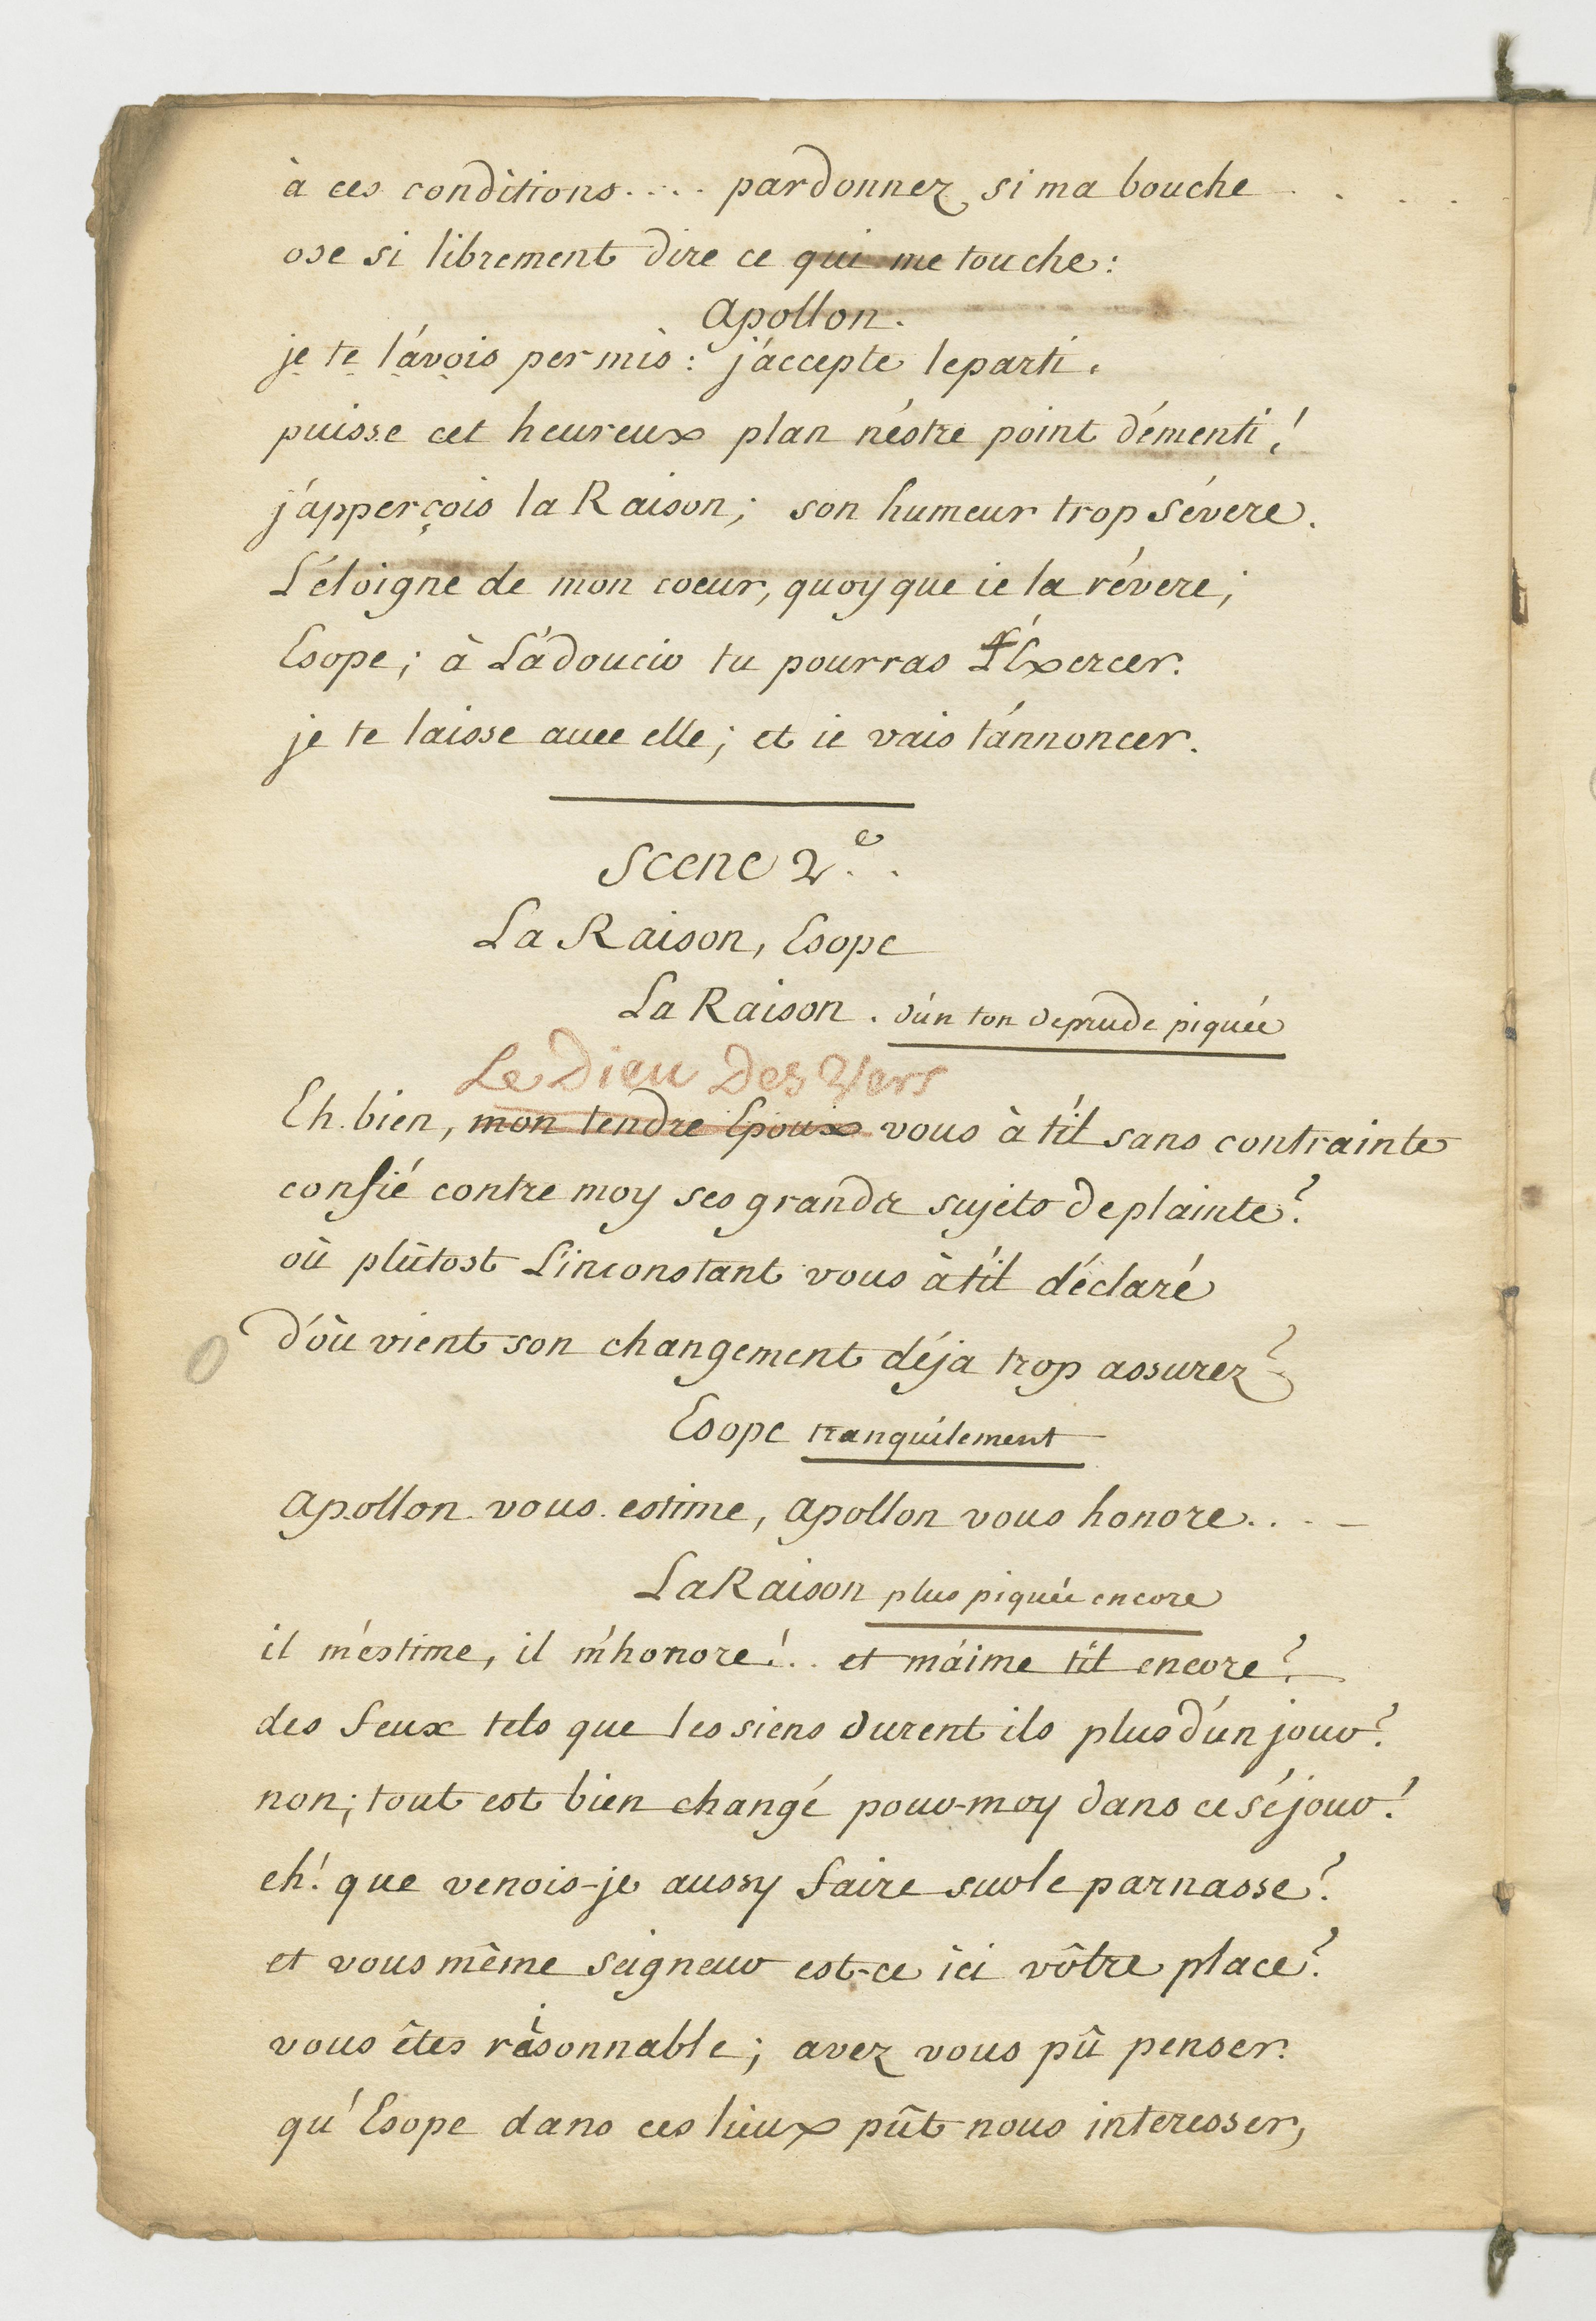 à ces conditions.... pardonnez, si ma bouche . . . .
ose si librement dire ce qui me touche:
Apollon.
je te l'avois permis: j'accepte le parti.
puisse cet heureux plan n'éstre point démenti!
j'apperçois la Raison; son humeur trop sévere.
L'éloigne de mon coeur, quoy que ie la révere;
Esope; à L'adoucir tu pourras t'éxercer.
je te laisse avec elle; et ie vais t'annoncer.
Scene 2.e.
La Raison, Esope
La Raison. d'un ton de prude piquée
Le Dieu Des Vers
Eh bien, mon tendre Epoux vous à t'il sans contrainte
confié contre moy ses grands sujets de plainte?
où plûtost L'inconstant vous à t'il déclaré
d'òu vient son changement déja trop assurez?
Esope tranquilement
Apollon vous estime, Apollon vous honore... –
La Raison plus piquée encore
il m'estime, il m'honore!.. et m'aime t'il encore?
des feux tels que les siens durent ils plus d'un jour?
non; tout est bien changé pour-moy dans ce séjour!
eh! que venois-je aussy faire sur le parnasse?
et vous même seigneur est-ce ici vôtre place?
vous êtes raisonnable; avez vous pû penser.
qu'Esope dans ces lieux pût nous interesser,